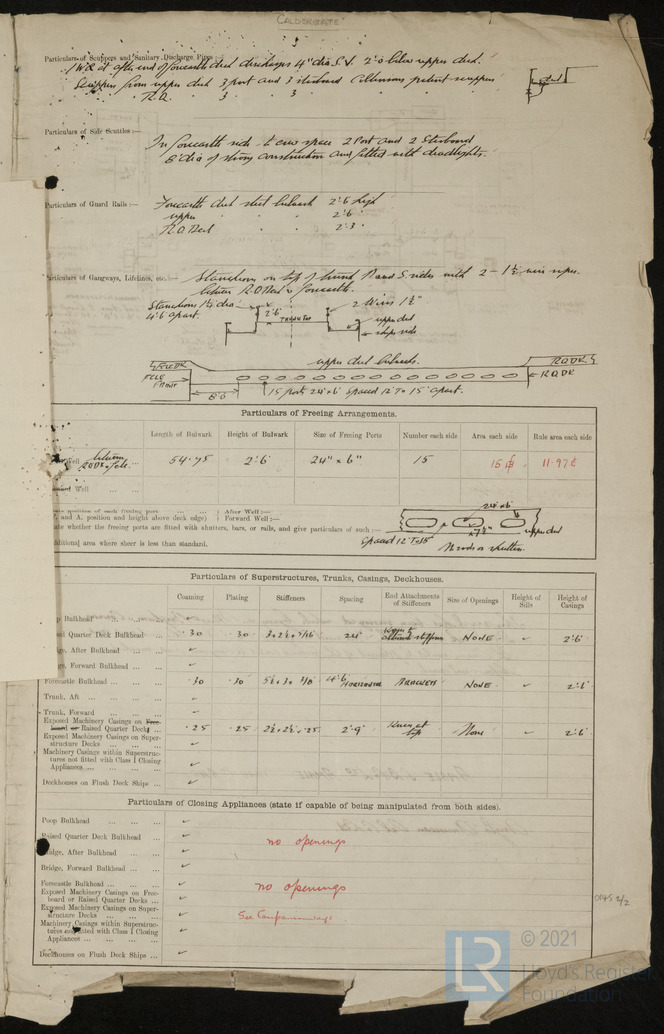 CALDERGATE
Particulars of Scuppers and Sanitary Discharge Pipes :—
1 W.C. at after end of forecastle deck discharges 4" dia S.V. 2'.0 below upper deck.
Scuppers from upper deck 3 port and 3 starboard patent scuppers
R.Q. " 3 " " 3 " " "
Particulars of Side Scuttles :—
In forecastle side to crew space 2 Port and 2 Starboard
6" dia of strong construction and fitted with deadlights.
Particulars of Guard Rails :—
Forecastle deck steel bulwark 2'.6 high
upper " " " 2'.6 "
R.Q. Deck " " 2'.3 "
Particulars of Gangways, Lifelines, etc. :—
Stanchions on top of trunk P and S sides with 2 - 1½" wire ropes
between R.Q Deck & forecastle.
Stanchions 1¼ dia
4'.6 apart.
2'.6"
2 Wires 1½"
TRUNK TOP
upper deck
ships side
FCLE DK
upper deck bulwarks.
R.Q DK
FCLE FRONT
R.Q DK
8'.0
15 ports 24" x 6" spaced 12" To 15" apart.
Particulars of Freeing Arrangements.
Length of Bulwark
Height of Bulwark
Size of Freeing Ports
Number each side
Area each side
Rule area each side
Well between RQDK & fcle.
54.75
2'.6
24" x 6"
15
15
11.97
Well
position of each freeing port
After Well :—
and A. position and height above deck edge)
Forward Well :—
whether the freeing ports are fitted with shutters, bars, or rails, and give particulars of such :—
additional area where sheer is less than standard.
24" x 6"
upper deck
Spaced 12" To 15"
No rods or shutters.
Particulars of Superstructures, Trunks, Casings, Deckhouses.
Coaming
Plating
Stiffeners
Spacing
End Attachments of Stiffeners
Size of Openings
Height of Sills
Height of Casings
Bulkhead
Quarter Deck Bulkhead ...
.30
.30
24"
NONE
2'.6
After Bulkhead ...
Forward Bulkhead ...
Forecastle Bulkhead ...
.30
.30
HORIZONTAL
BRACKETS
NONE
Trunk, Aft
Trunk, Forward
Exposed Machinery Casings on Free-
board or Raised Quarter Decks ...
.25
.25
2½ x 2½ x .25
2'.9"
Knees at top
None
2'.6
Exposed Machinery Casings on Super-
structure Decks
Machinery Casings within Superstruc-
tures not fitted with Class I Closing
Appliances ...
Deckhouses on Flush Deck Ships ...
Particulars of Closing Appliances (state if capable of being manipulated from both sides).
Poop Bulkhead
Raised Quarter Deck Bulkhead
no openings
Bridge, After Bulkhead
Bridge, Forward Bulkhead
Forecastle Bulkhead
no openings
Exposed Machinery Casings on Free-
board or Raised Quarter Decks ...
Exposed Machinery Casings on Super-
structure Decks
See Companionways
Machinery Casings within Superstruc-
tures not fitted with Class I Closing
Appliances
Deckhouses on Flush Deck Ships ...
0145 2/2
LR
© 2021
Lloyd's Register
Foundation